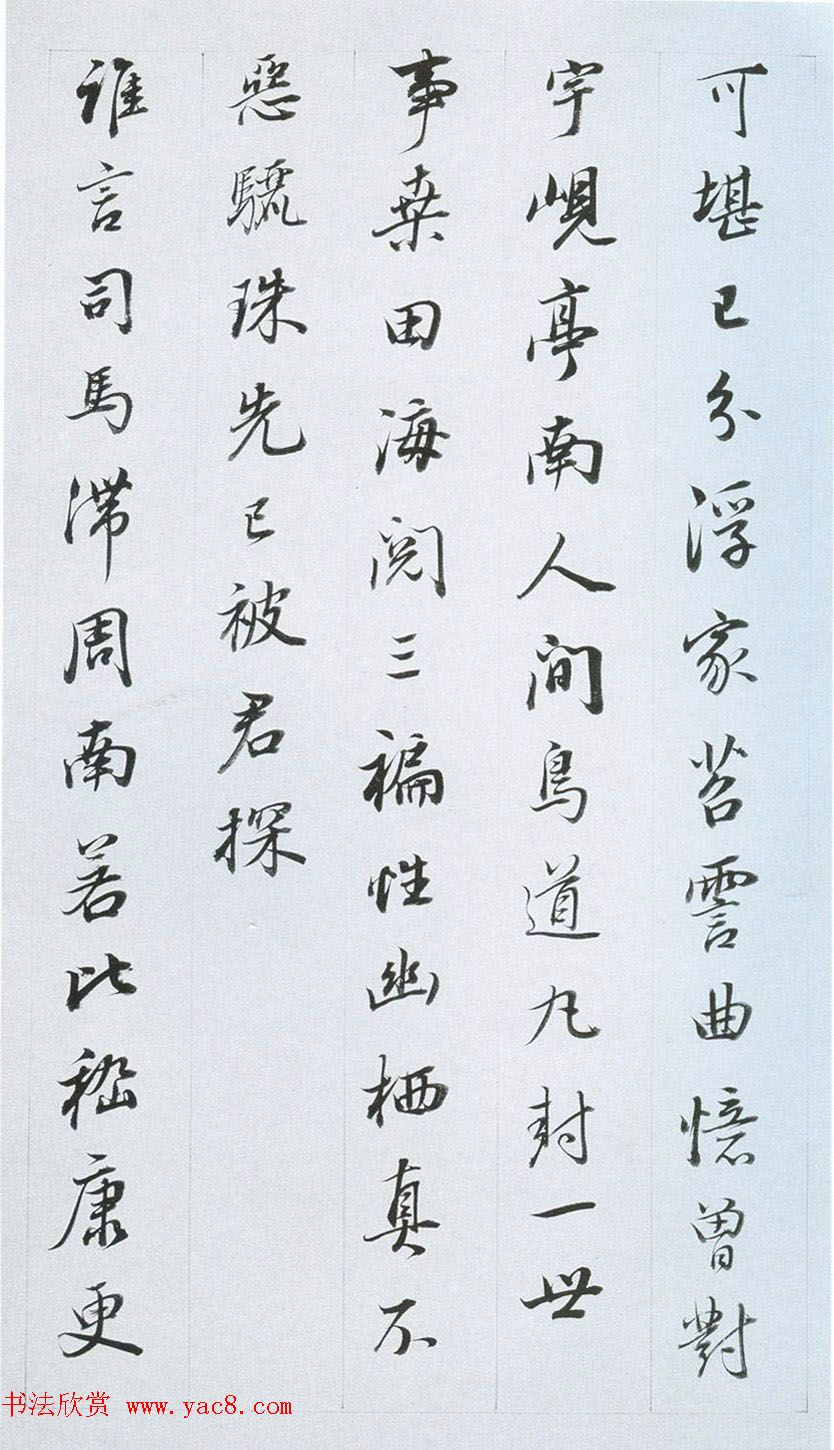 可堪已分浮家苕霅曲憶曾對
宇峴亭南人間鳥道丸封一世
事桑田海閱三褊性幽栖真不
惡驪珠先已被君探
誰言司馬滯周南若比嵇康更
书法欣赏 www.yac8.com